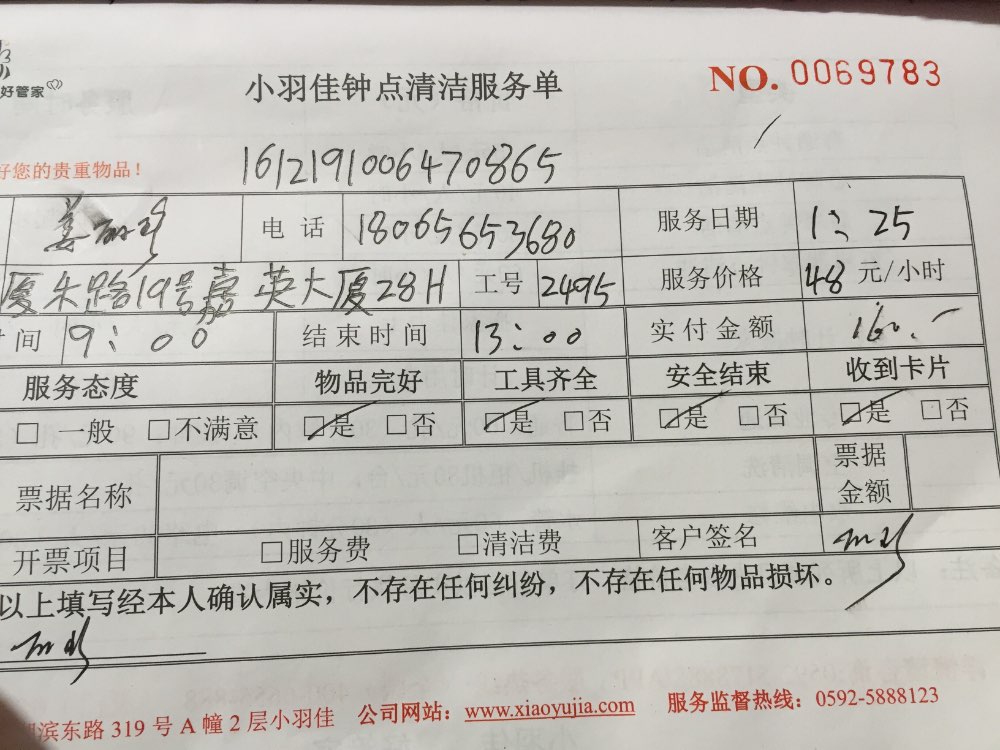 好管家
小羽佳钟点清洁服务单
NO. 0069783
好您的贵重物品!
1612191006470865
姜 电话 18065653680 服务日期 1:25
厦禾路19号嘉英大厦28H 工号 2495 服务价格 48 元/小时
时间 9:00 结束时间 13:00 实付金额 160.-
服务态度 物品完好 工具齐全 安全结束 收到卡片
□ 一般 □不满意 □是 □否 □是 □否 □是 □否 □是 □否
票据名称 票据金额
开票项目 □服务费 □清洁费 客户签名
以上填写经本人确认属实,不存在任何纠纷,不存在任何物品损坏。
湖滨东路 319 号 A 幢 2 层小羽佳 公司网站:www.xiaoyujia.com 服务监督热线:0592-5888123